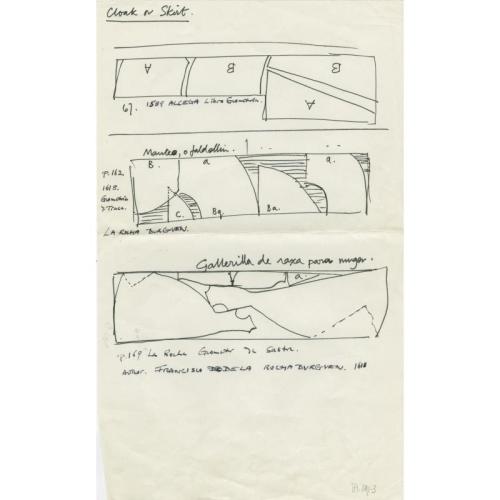 Cloak or Skirt.
A B B
A
67. 1589 ALCEGA Libro Geometria.
Manteo, o faldellin.
p.162.
1618.
Geometria
y Traca.
B. a a.
C. Ba. Ba.
LA ROCHA BURGUEN.
Gallerilla de raxa para muger.
a.
p.169 La Rocha
Autor. FRANCISCO DE LA ROCHA BURGUEN. 1618